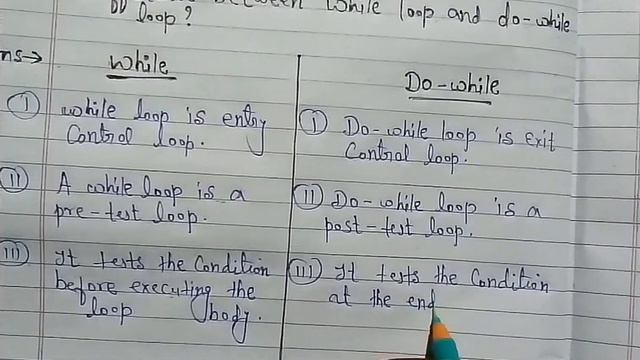 between while loop and do-while
loop?
ns→
while
Do-while
(I) while loop is entry
Control loop.
(I) Do-while loop is exit
Control loop.
(II) A while loop is a
pre-test loop.
(II) Do-while loop is a
post-test loop.
(III) It tests the Condition
before executing the
loop body.
(III) It tests the Condition
at the end